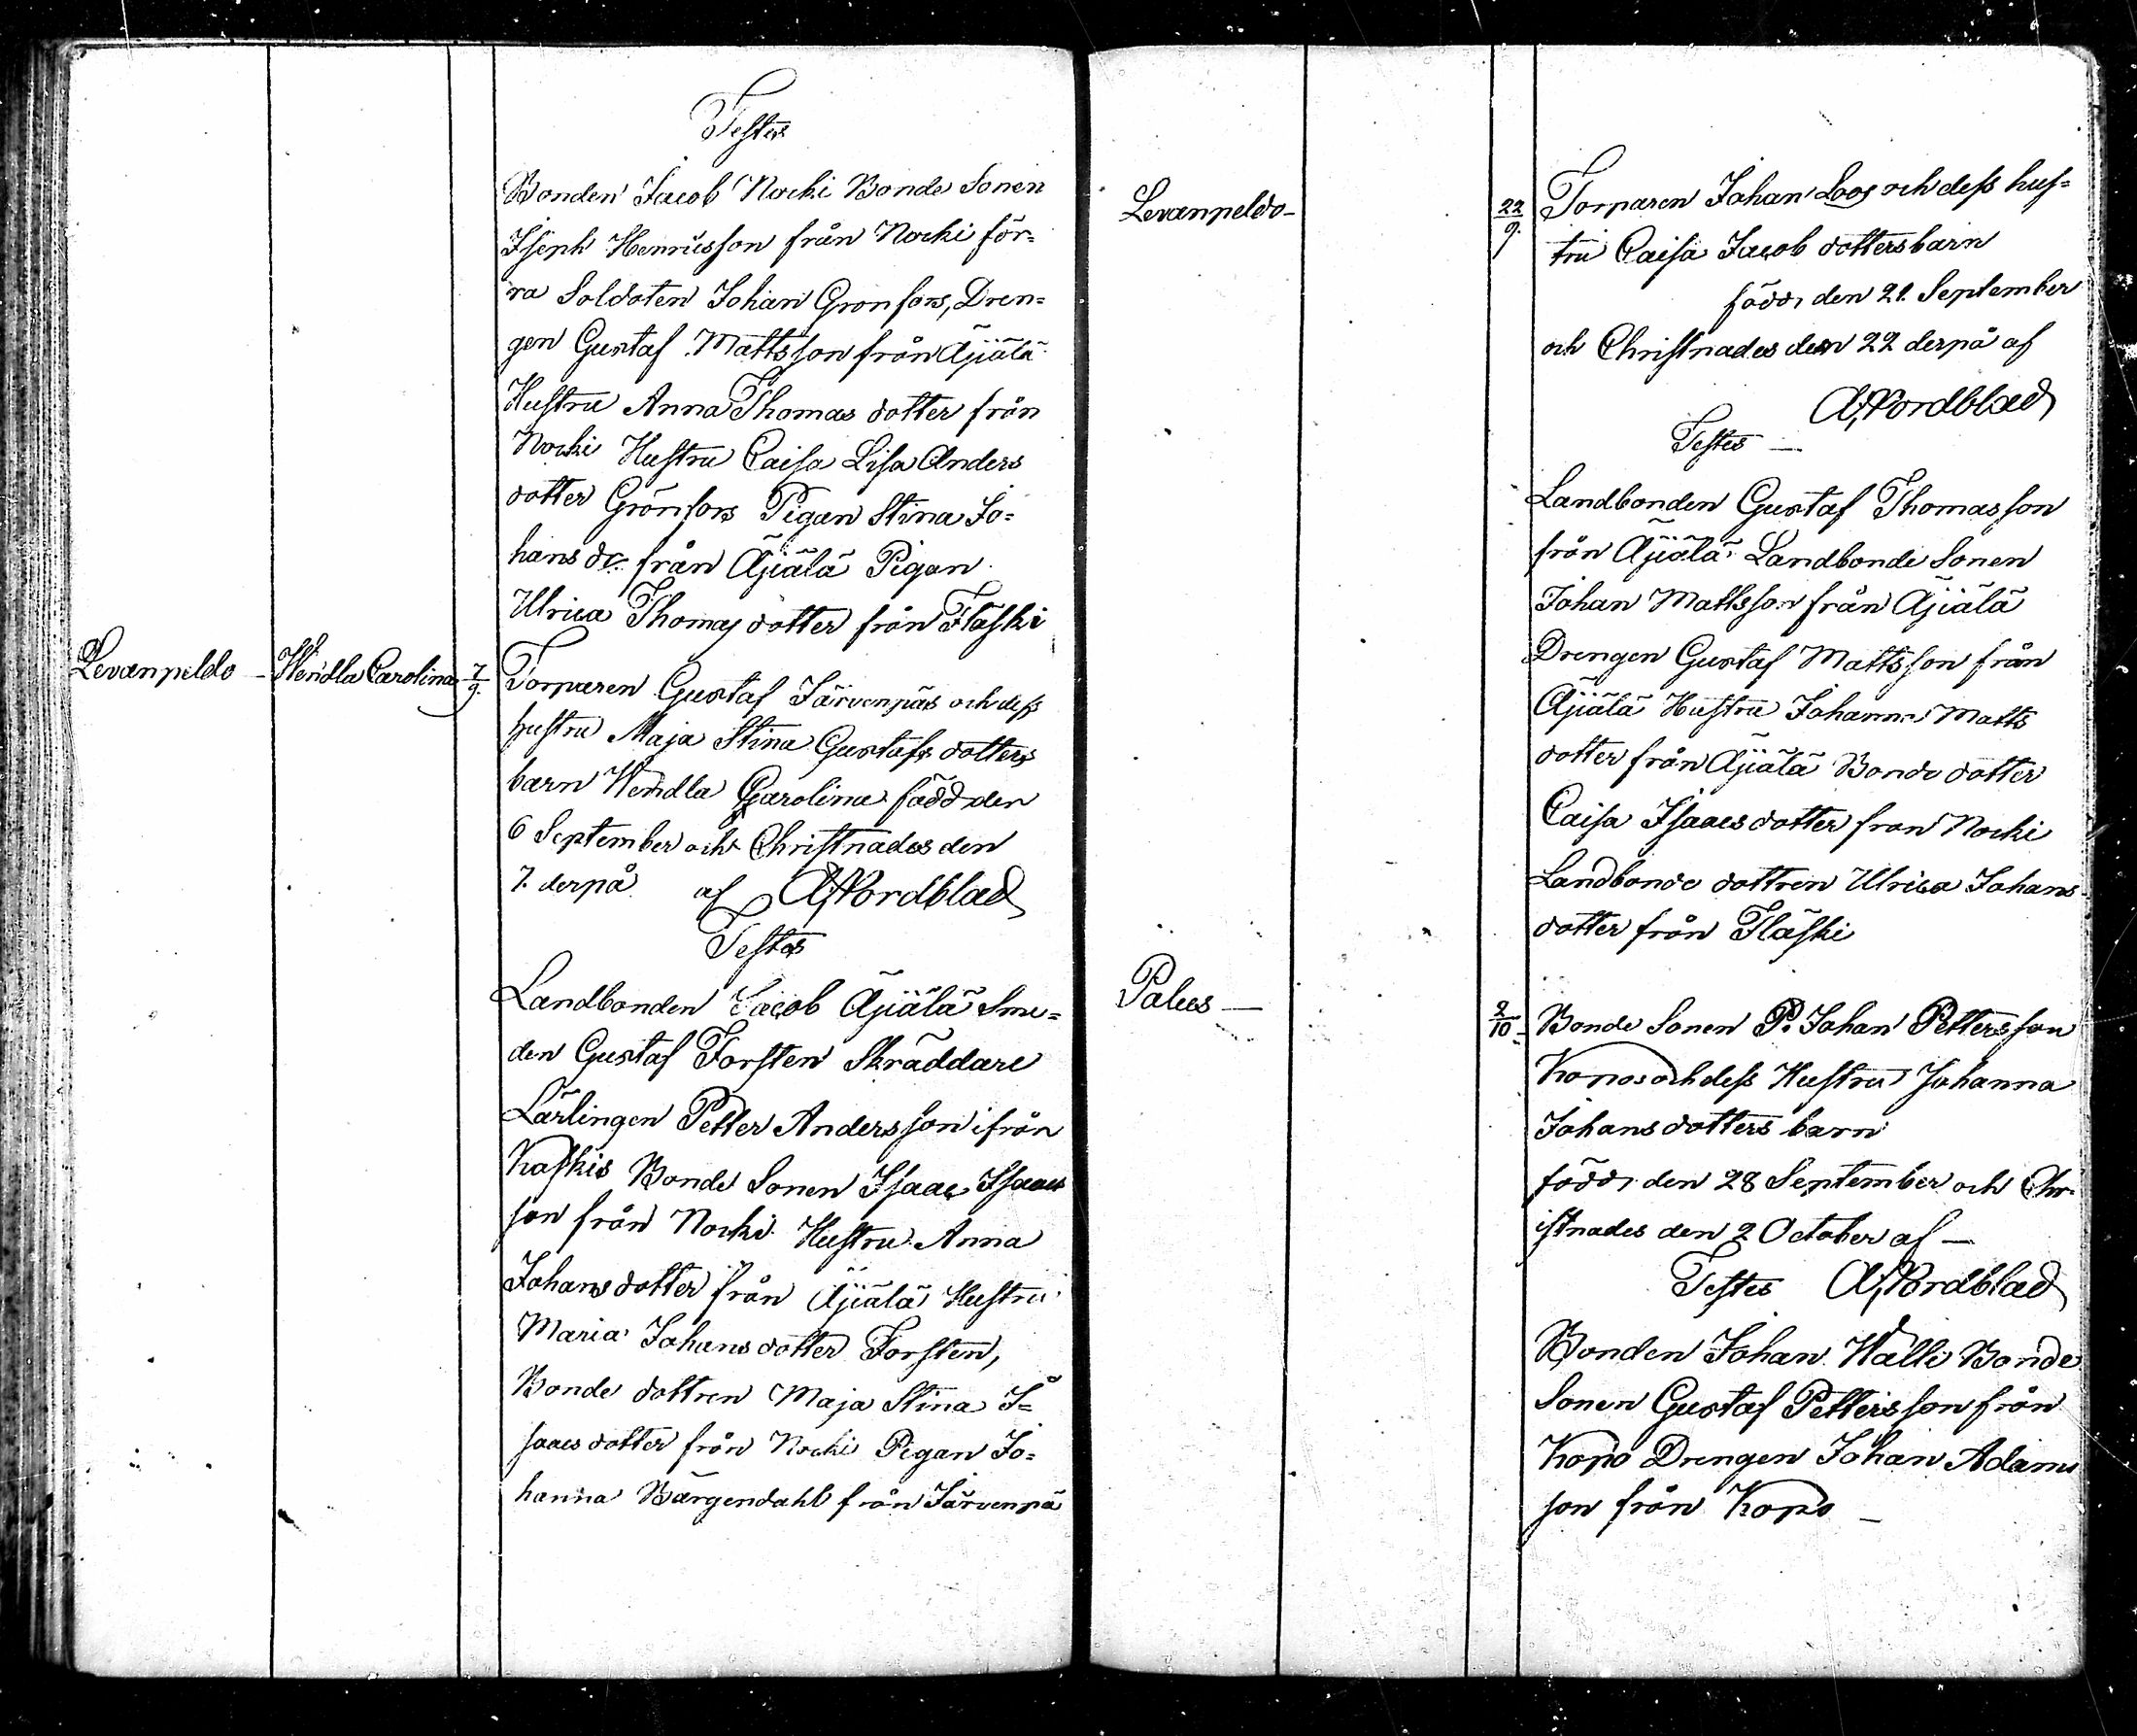 Testes
Bonden Jacob Nocki Bonde Sonen
Iseph Henricsson från Nocki för=
ra Soldaten Johan Gronfors, Dren=
gen Gustaf Mattsson från Äjälä
Hustru Anna Thomas dotter från
Nocki Hustru Caisa Lisa Anders
dotter Grönfors Pigan Stina Jo=
hans dr från Äjälä Pigan
Ulrica Thomas dotter från Fläski
Levanpeldo - Wendla Carolina 7/9. Torparen Gustaf Järvenpää och dess
hustru Maja Stina Gustafs dotters
barn Wendla Carolina född den
6 September och Christnades den
7. derpå af A, Nordblad
Testes
Landbonden Jacob Äjälä Sme=
den Gustaf Forsten Skräddare
Lärlingen Petter Andersson ifrån
Kaskis Bonde Sonen Isaac Isaacs
son från Nocki Hustru Anna
Johans dotter från Äjälä Hustru
Maria Johans dotter Forsten,
Bonde dottren Maja Stina I=
saacs dotter från Nocki Pigan Jo=
hanna Bärgendahl från Järvenpä
Levanpeldo- 22/9. Torparen Johan Loos och dess hus=
tru Caisa Jacob dotters barn
född den 21. September
och Christnades den 22 derpå af
A, Nordblad
Testes —
Landbonden Gustaf Thomasson
från Äjälä Landbonde Sonen
Johan Mattsson från Äjälä
Drengen Gustaf Mattsson från
Äjälä Hustru Johanna Matts
dotter från Äjälä Bonde dotter
Caisa Isaacs dotter fron Nocki
Landbonde dottren Ulrica Johans
dotter från Fläski
Palus — 2/10. Bonde Sonen P. Johan Pettersson
Kopos och dess Hustru Johanna
Johans dotters barn
född den 28 September och Chr
istnades den 2 October af —
Testes A, Nordblad
Bonden Johan Walli Bonde
Sonen Gustaf Pettersson från
Kopo Drengen Johan Adams
son från Kopo —